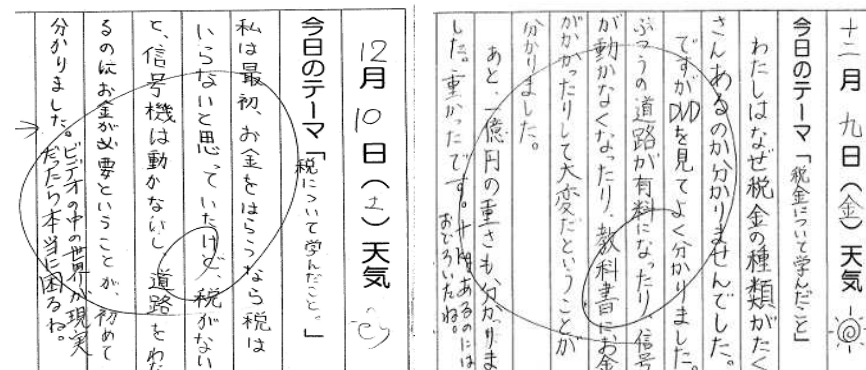 十二月 九日(金)天気
今日のテーマ「税金について学んだこと」
わたしはなぜ税金の種類がたく
さんあるのか分かりませんでした。
ですがDVDを見てよく分かりました。
ふつうの道路が有料になったり、信号
が動かなくなったり、教科書にお金
がかかったりして大変だということが
分かりました。
あと、一億円の重さも分かりま
した。重かったです。
十kgあるのには
おどろいたね。
12月10日(土)天気
今日のテーマ「税について学んだこと。」
私は最初、お金をはらうなら税は
いらないと思っていたけど、税がない
と、信号機は動かないし、道路をわた
るのにお金が必要ということが、初めて
分かりました。
ビデオの中の世界が現実
だったら本当に困るね。